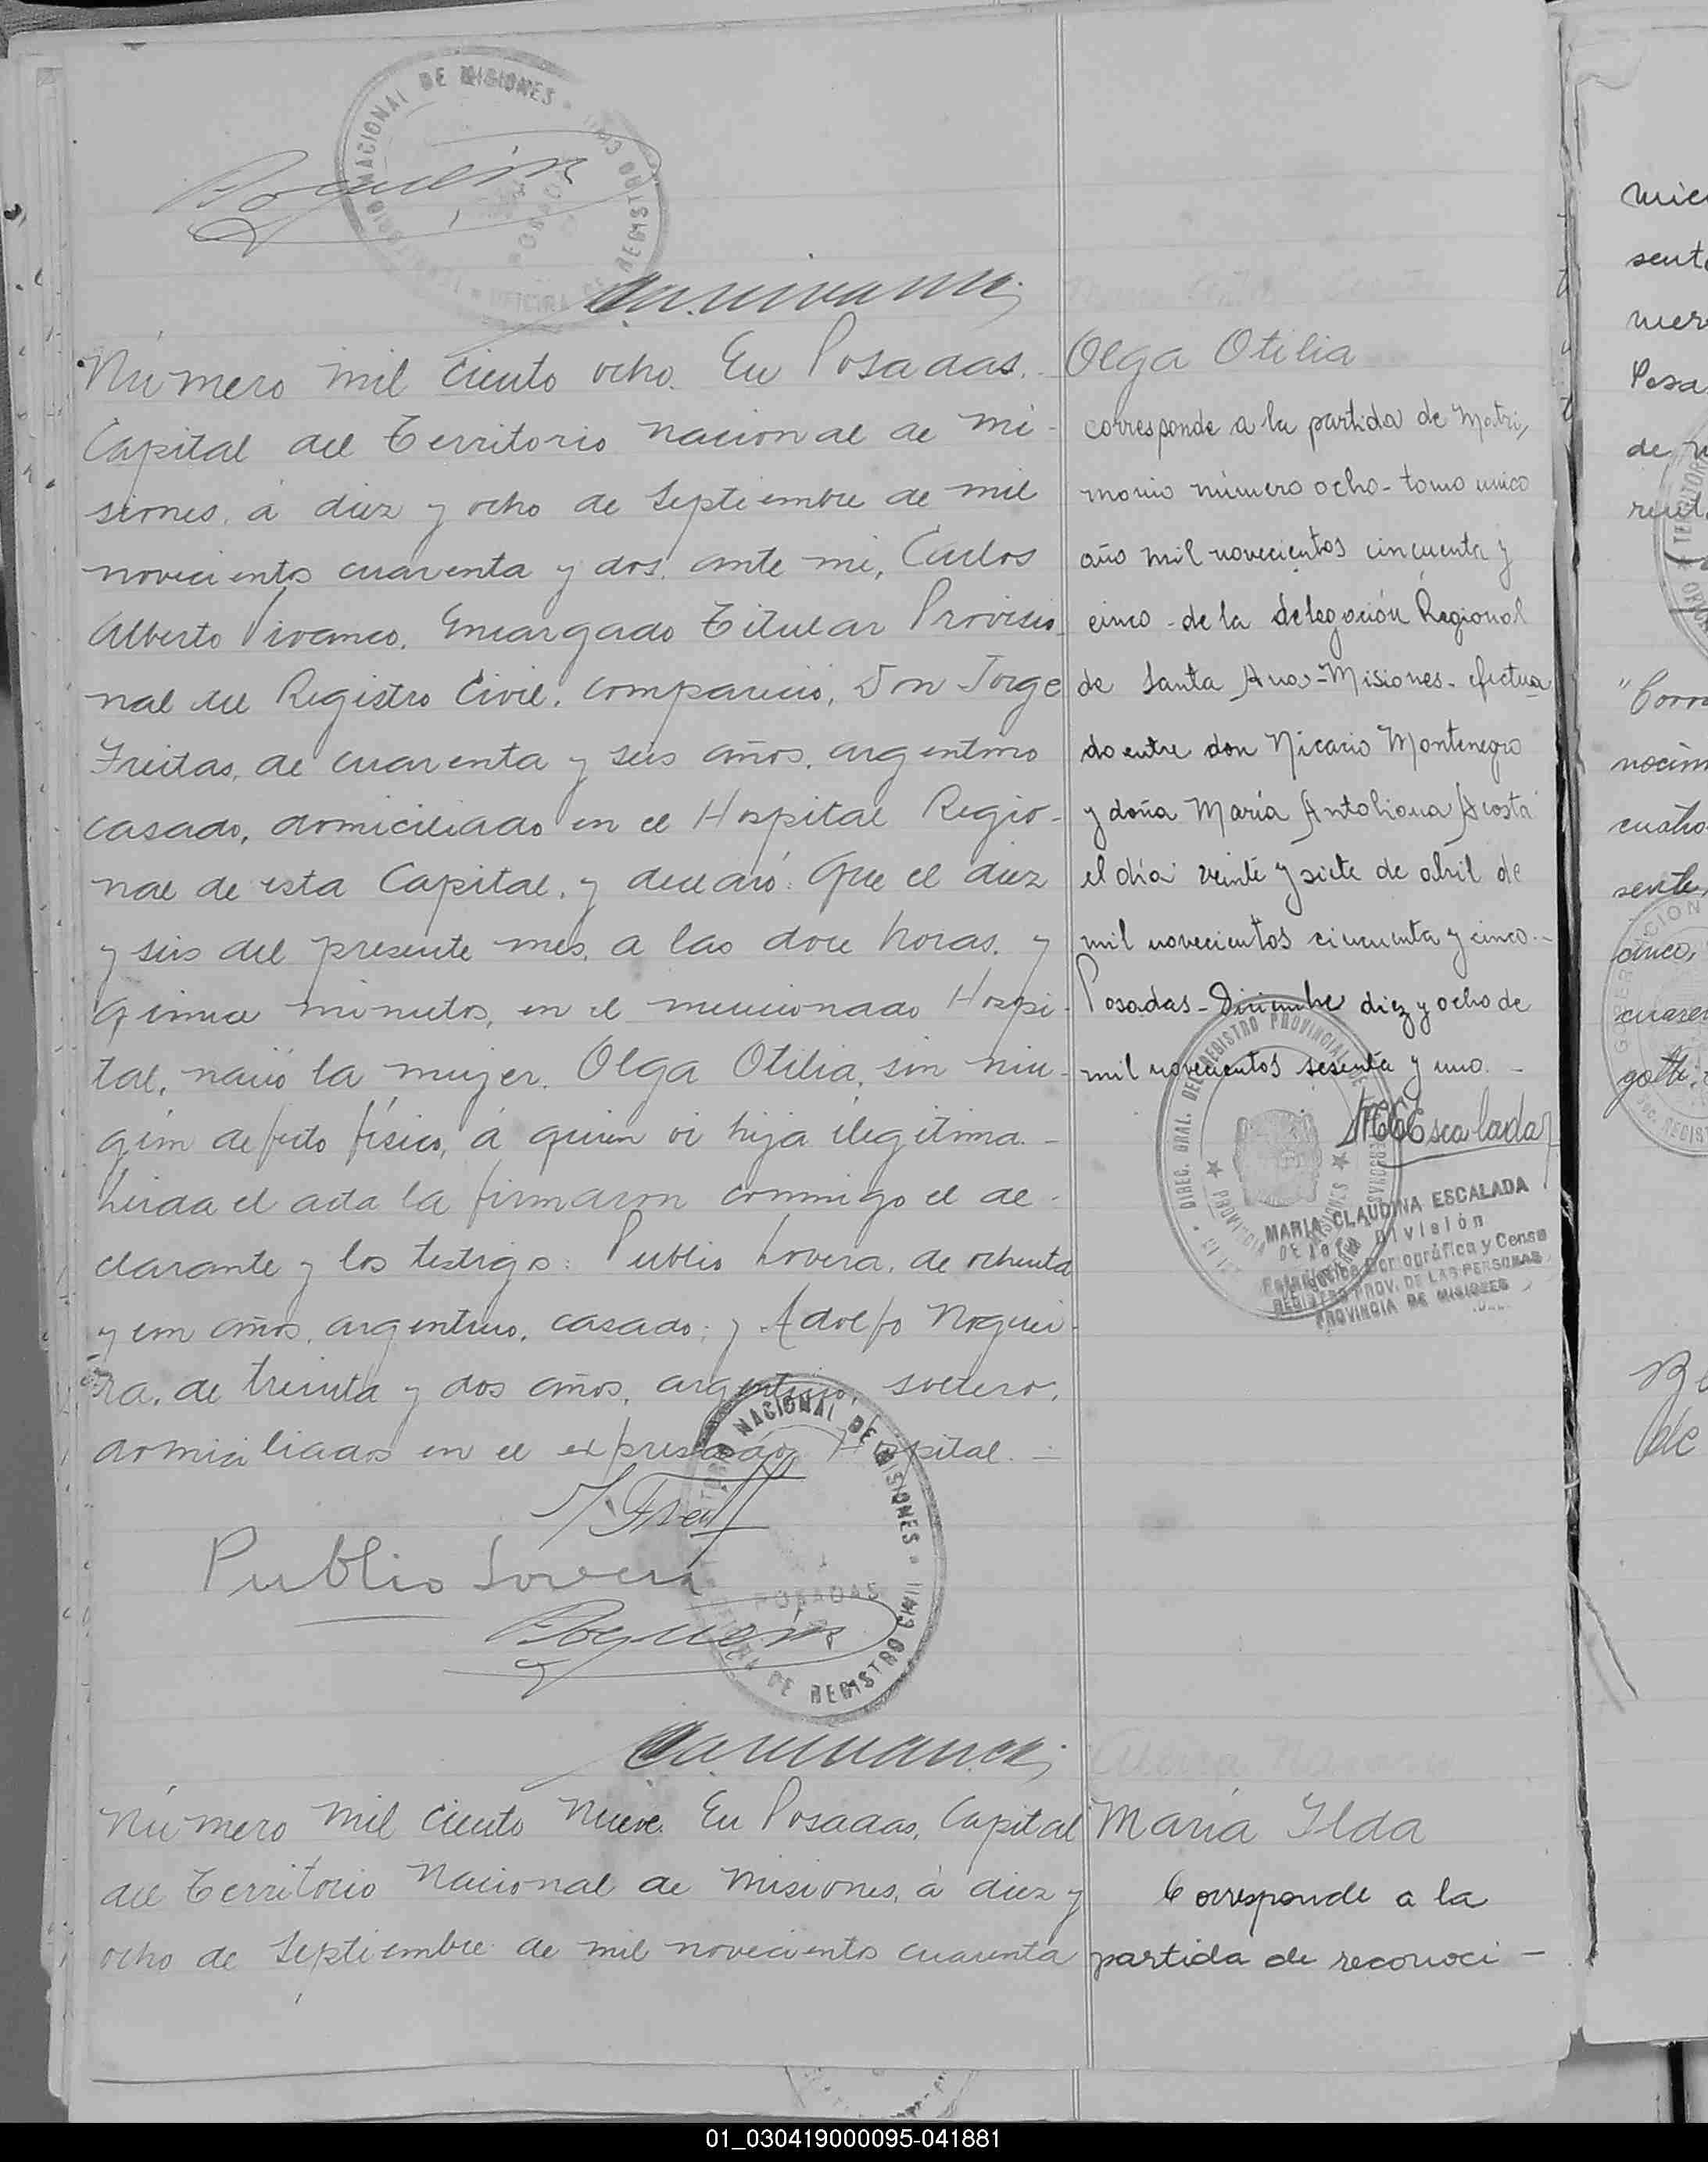 TERRITORIO NACIONAL DE MISIONES
OFICINA DE REGISTRO CIVIL
POSADAS
Número mil ciento ocho. En Posadas.
Capital del Territorio nacional de Mi-
siones, á diez y ocho de Septiembre de mil
novecientos cuarenta y dos, ante mi, Carlos
Alberto Vivanco, Encargado Titular Provisio-
nal del Registro Civil, compareció, Don Jorge
Freitas, de cuarenta y seis años, argentino
casado, domiciliado en el Hospital Regio-
nal de esta Capital, y declaró: Que el diez
y seis del presente mes, a las doce horas, y
quince minutos, en el mencionado Hospi-
tal, nació la mujer, Olga Otilia, sin nin-
gún defecto físico, á quien vi hija ilegítima.-
Leida el acta la firmaron conmigo el de-
clarante y los testigos: Publio Lovera, de ochenta
y un años, argentino, casado; y Adolfo Noguei-
ra, de treinta y dos años, argentino, soltero,
domiciliados en el expresado Hospital.=
J. Freit
Publio Lovera
TERRITORIO NACIONAL DE MISIONES
POSADAS
OFICINA DE REGISTRO CIVIL
Número mil ciento nueve. En Posadas, Capital
del Territorio Nacional de Misiones, á diez y
ocho de Septiembre de mil novecientos cuarenta
Olga Otilia
corresponde a la partida de Matri,
monio número ocho-tomo unico
año mil novecientos cincuenta y
cinco-de la delegación Regional
de Santa Ana-Misiones-efectua
do entre don Nicario Montenegro
y doña María Antoliana Acosta
el día veinte y siete de abril de
mil novecientos cincuenta y cinco.-
Posadas-Diciembre diez y ocho de
mil novecientos sesenta y uno.-
MCEscalada
DIREC. GRAL. DEL REGISTRO PROVINCIAL DE LAS PERSONAS
PROVINCIA DE MISIONES
MARIA CLAUDINA ESCALADA
Jefe División
Estadística Demográfica y Censo
REGISTRO PROV. DE LAS PERSONAS
PROVINCIA DE MISIONES
María Ilda
Corresponde a la
partida de reconoci-
mie
sent
mer
Posa
de
"Corr
nocim
cuatro
sente,
cinco,
cuaren
de
01_030419000095-041881